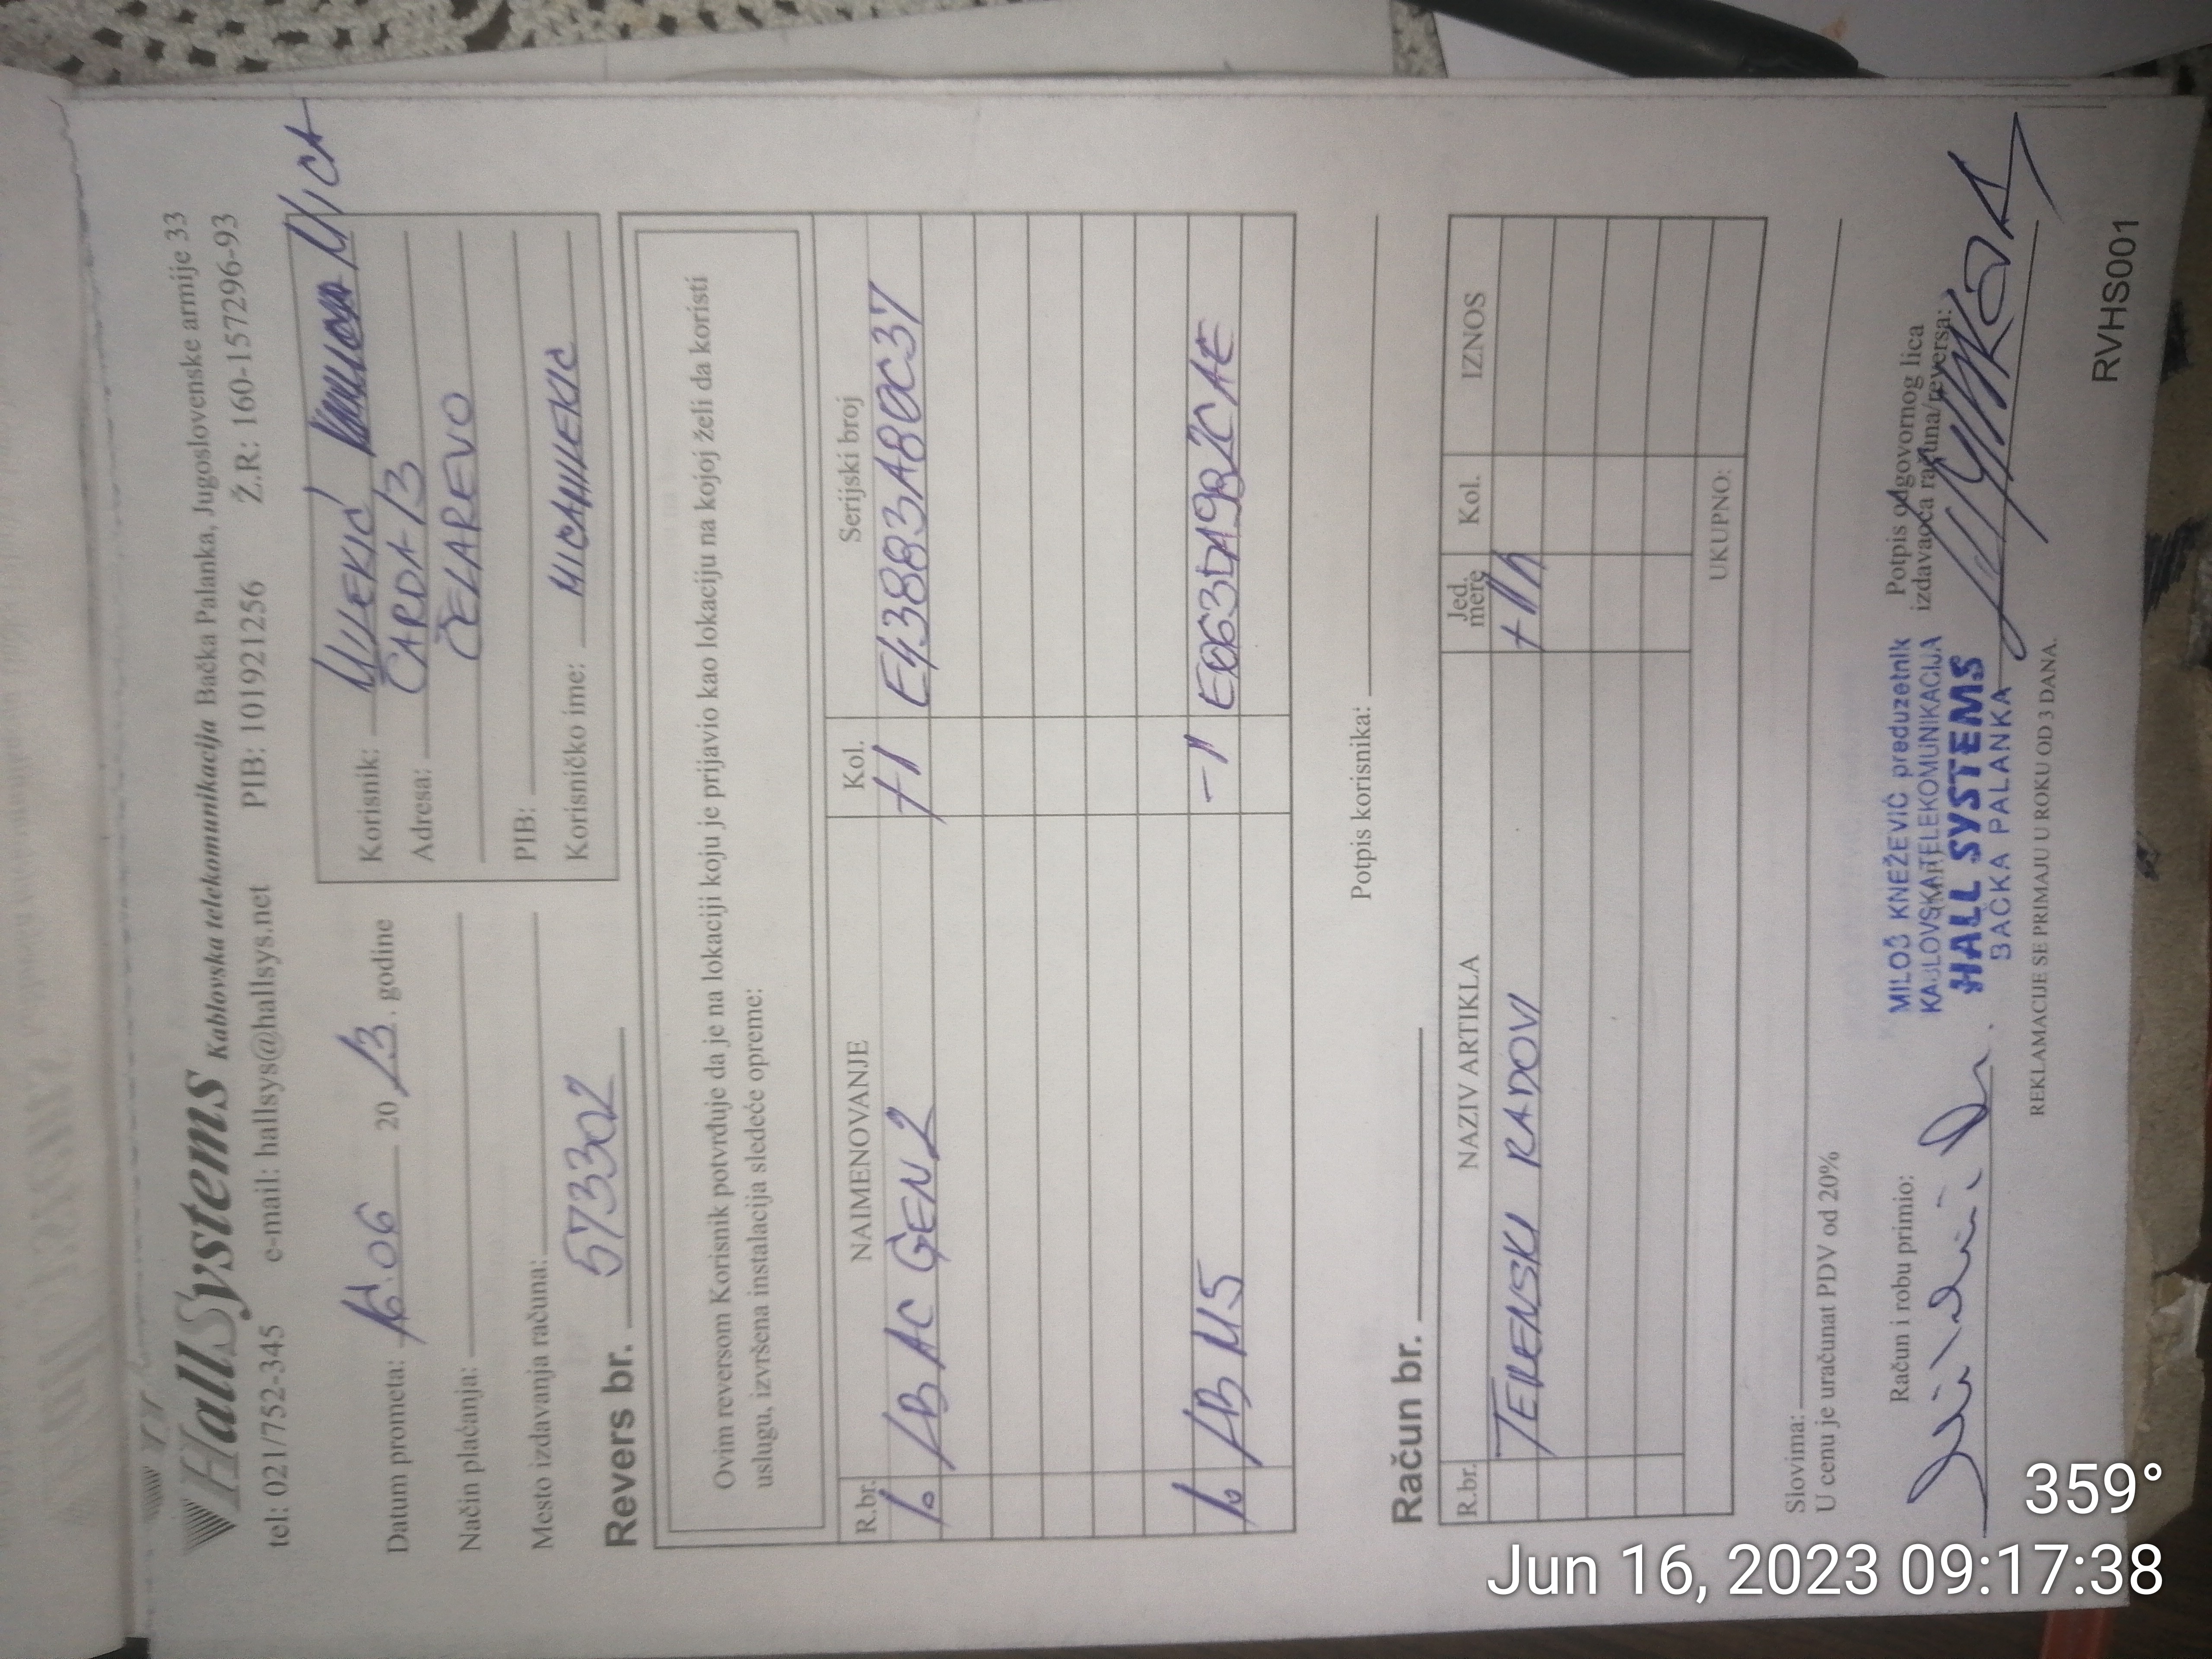 HallSystems Kablovska telekomunikacija Bačka Palanka, Jugoslovenske armije 33
tel: 021/752-345 e-mail: hallsys@hallsys.net PIB: 101921256 Ž.R: 160-157296-93
Datum prometa: 16.06 20 13. godine
Način plaćanja:
Mesto izdavanja računa:
Korisnik: MILEKIĆ MICA
Adresa: ČARDA 13
ČELAREVO
PIB:
Korisničko ime: MICAMILEKIC
Revers br. 573302
Ovim reversom Korisnik potvrđuje da je na lokaciji koju je prijavio kao lokaciju na kojoj želi da koristi
uslugu, izvršena instalacija sledeće opreme:
R.br. NAIMENOVANJE Kol. Serijski broj
1. LB AC GEN2 +1 E43883A80C37
1. LB M5 -1 E063DA9B2CAE
Potpis korisnika:
Račun br.
R.br. NAZIV ARTIKLA Jed. mere Kol. IZNOS
TERENSKI RADOVI
UKUPNO:
Slovima:
U cenu je uračunat PDV od 20%
Račun i robu primio:
MILOŠ KNEŽEVIĆ preduzetnik
KABLOVSKA TELEKOMUNIKACIJA
HALL SYSTEMS
BAČKA PALANKA
Potpis odgovornog lica
izdavaoca računa/reversa:
REKLAMACIJE SE PRIMAJU U ROKU OD 3 DANA.
RVHS001
359°
Jun 16, 2023 09:17:38